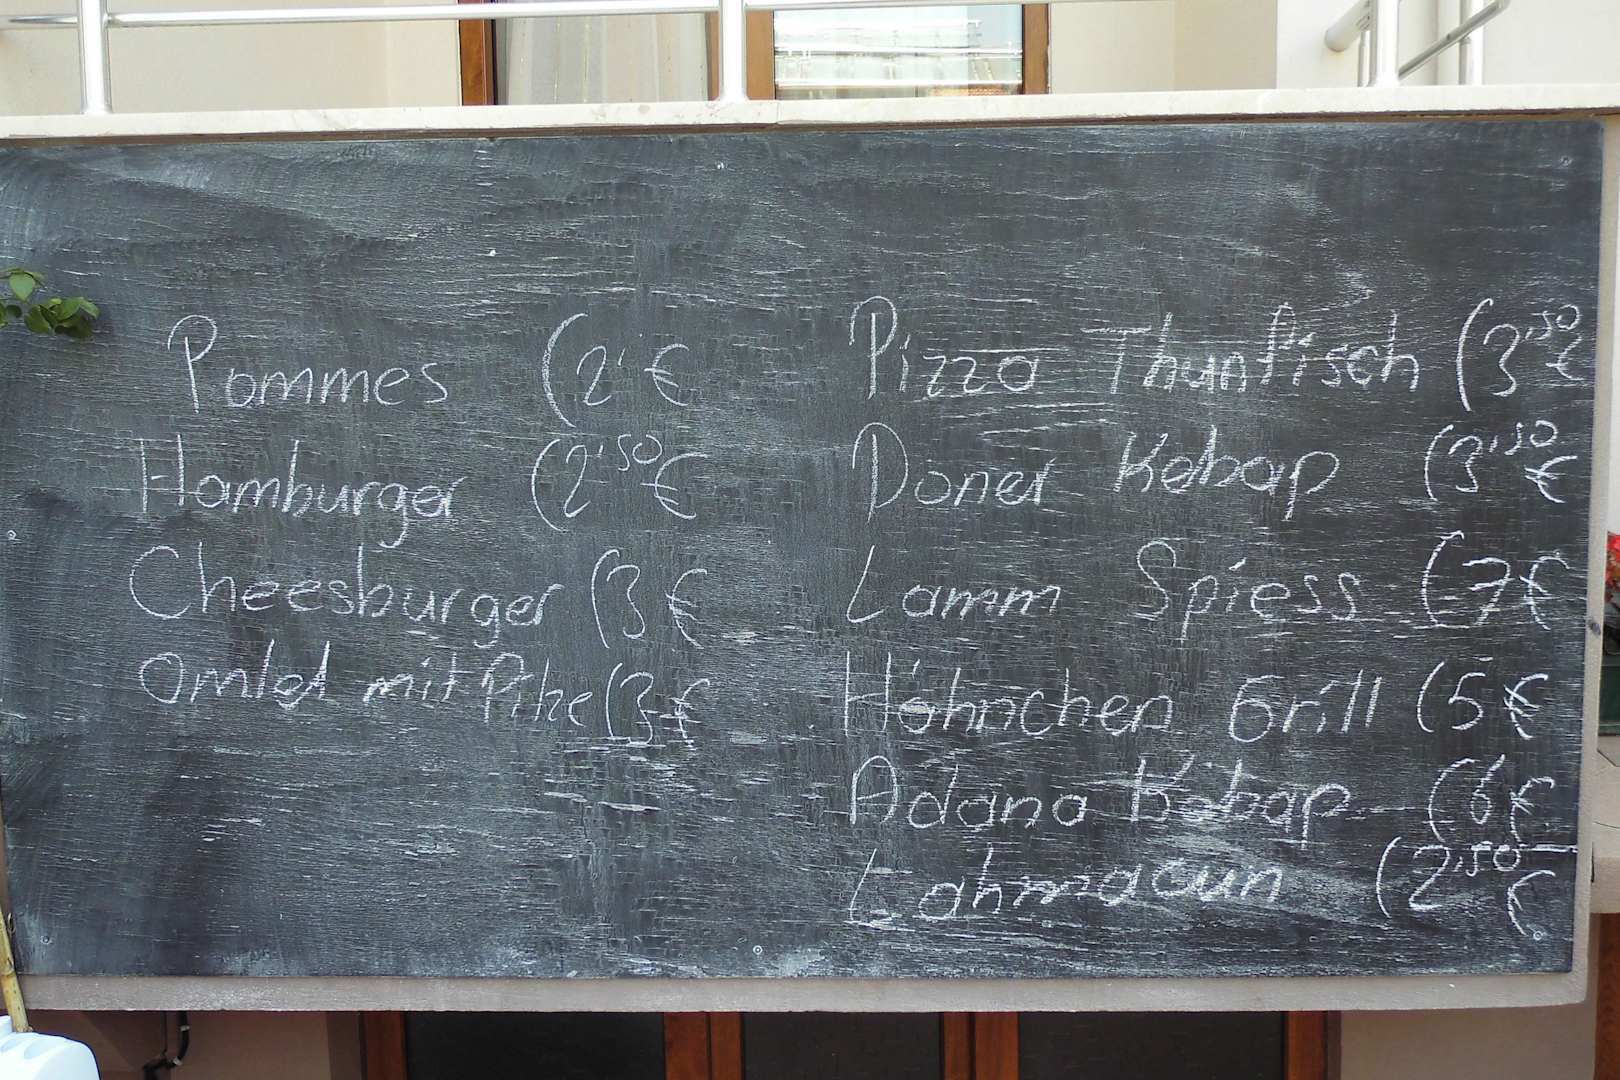 Pommes (2 €
Hamburger (2,50 €
Cheesburger (3 €
Omlet mit Pilze (3 €
Pizza Thunfisch (3,50 €
Doner Kebap (3,50 €
Lamm Spiess (7 €
Höhnchen Grill (5 €
Adana Kebap (6 €
Lahmacun (2,50 €